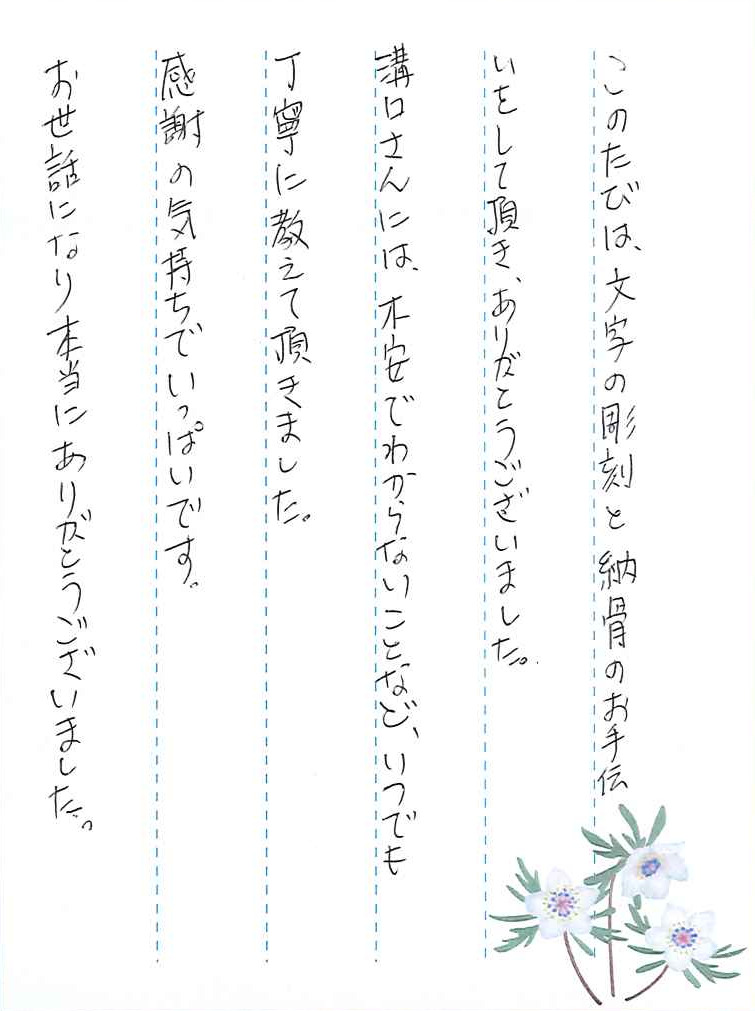 このたびは、文字の彫刻と納骨のお手伝
いをして頂き、ありがとうございました。
溝口さんには、不安でわからないことなど、いつでも
丁寧に教えて頂きました。
感謝の気持ちでいっぱいです。
お世話になり本当にありがとうございました。